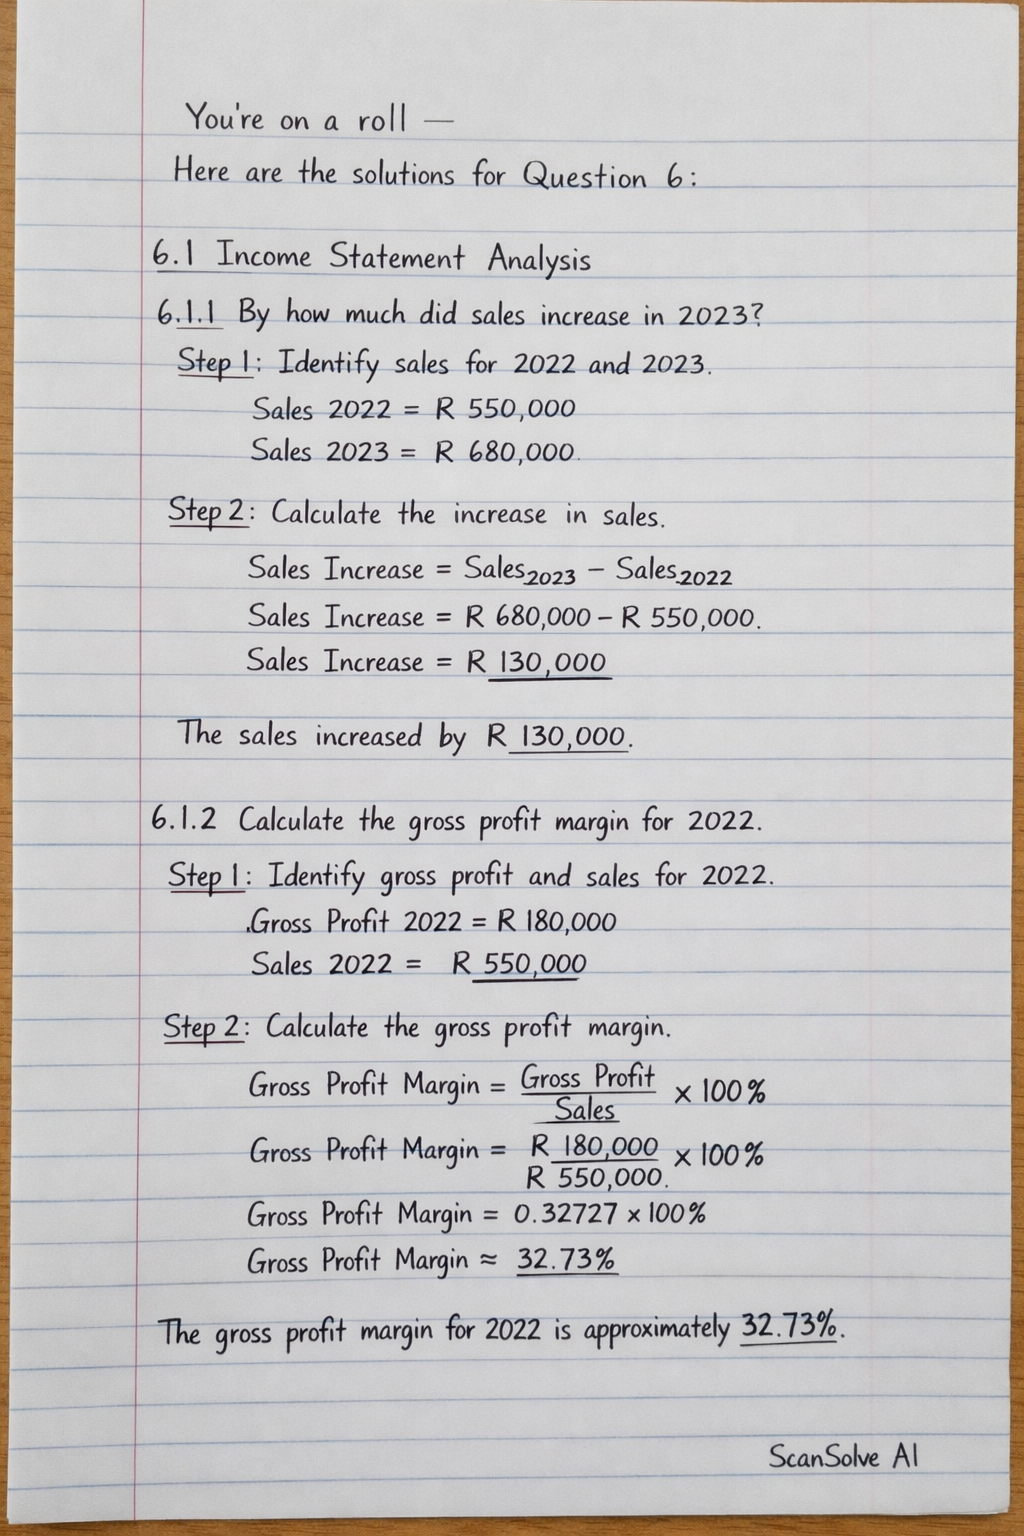 You're on a roll —
Here are the solutions for Question 6:
6.1 Income Statement Analysis
6.1.1 By how much did sales increase in 2023?
Step 1: Identify sales for 2022 and 2023.
Sales 2022 = R 550,000
Sales 2023 = R 680,000.
Step 2: Calculate the increase in sales.
Sales Increase = Sales₂₀₂₃ − Sales₂₀₂₂
Sales Increase = R 680,000 − R 550,000.
Sales Increase = R 130,000
The sales increased by R 130,000.
6.1.2 Calculate the gross profit margin for 2022.
Step 1: Identify gross profit and sales for 2022.
.Gross Profit 2022 = R 180,000
Sales 2022 = R 550,000
Step 2: Calculate the gross profit margin.
Gross Profit Margin = Gross Profit / Sales × 100%
Gross Profit Margin = R 180,000 / R 550,000. × 100%
Gross Profit Margin = 0.32727 × 100%
Gross Profit Margin ≈ 32.73%
The gross profit margin for 2022 is approximately 32.73%.
ScanSolve AI